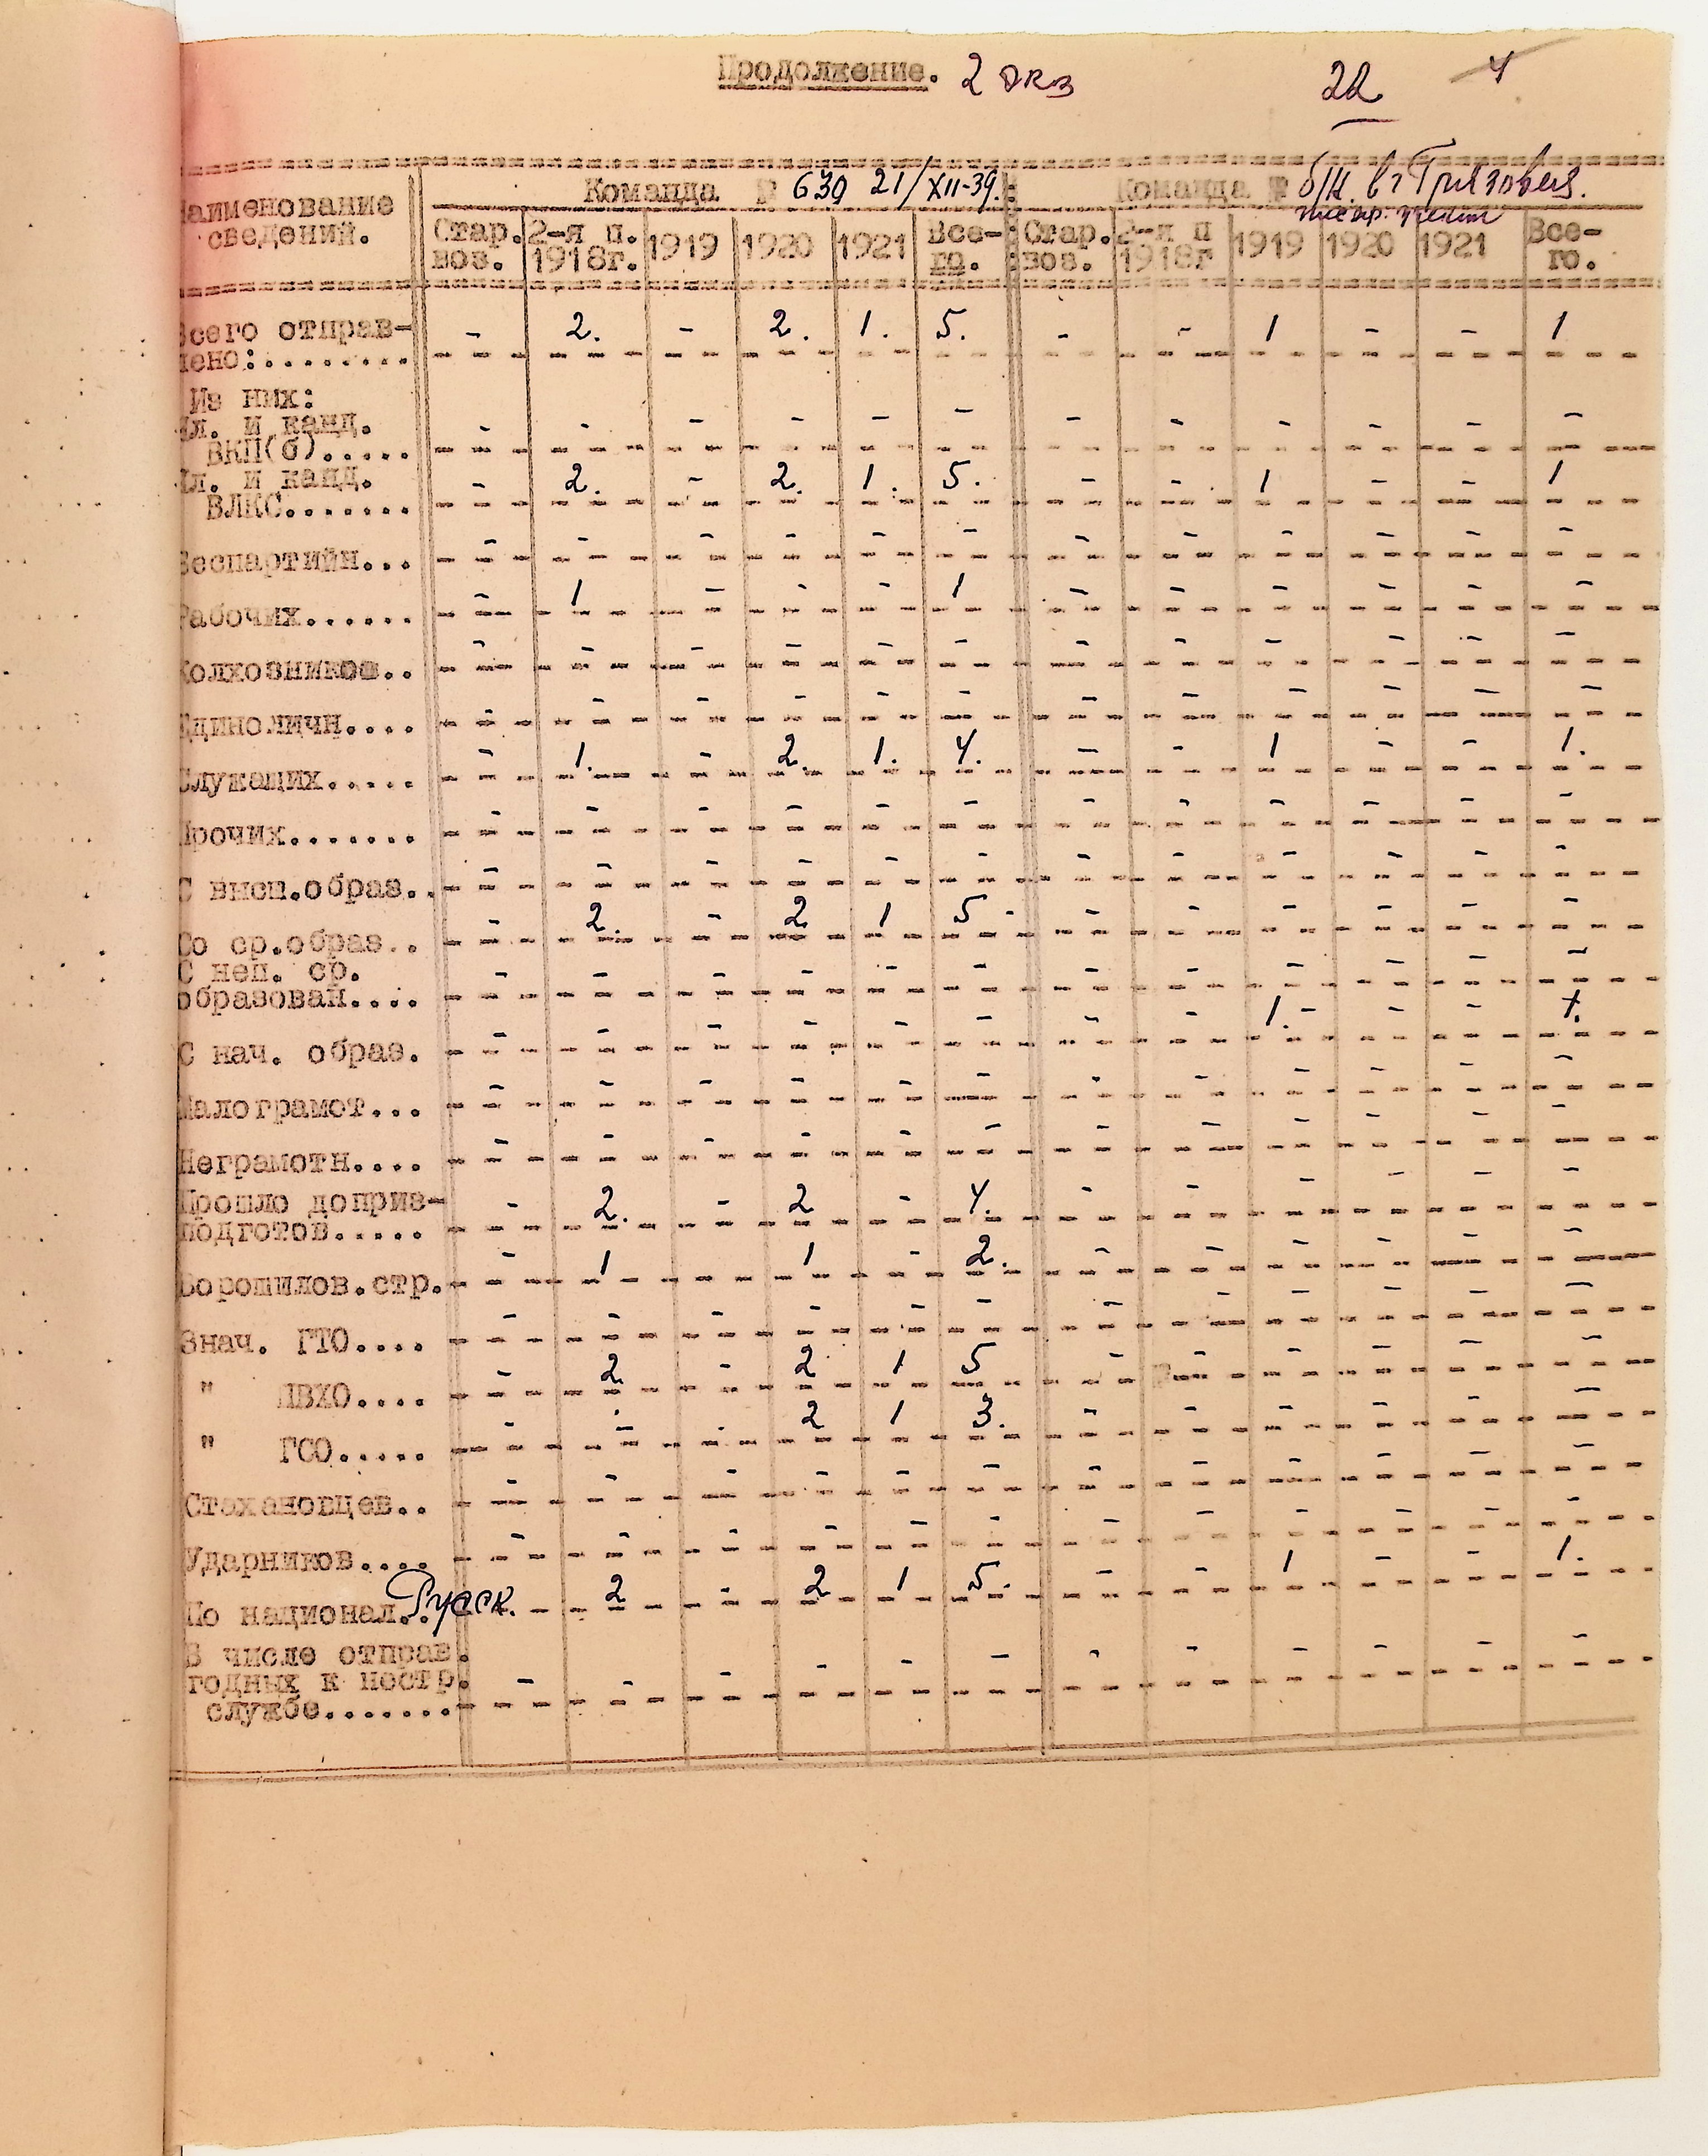 Продолжение. 2 экз 22 4
Команда № 630 21/XII-39. Команда № б/н. в г Грязовец.
Наименование сведений. Стар. воз. 2-я п. 1918г. 1919 1920 1921 Все-го. Стар. воз. 2-я п 1918г 1919 1920 1921 Все-го.
Всего отправ-
лено:........ - 2. - 2. 1. 5. - - 1 - - 1
Из них:
Чл. и канд.
ВКП(б)..... - - - - - - - - - - - -
Чл. и канд.
ВЛКС....... - 2. - 2. 1. 5. - - 1 - - 1
Беспартийн... - - - - - - - - - - - -
Рабочих...... - 1 - - - 1 - - - - - -
Колхозников.. - - - - - - - - - - - -
Единоличн.... - - - - - - - - - - - -
Служащих..... - 1. - 2. 1. 4. - - 1 - - 1.
Прочих....... - - - - - - - - - - - -
С высш.образ.. - - - - - - - - - - - -
Со ср.образ.. - 2. - 2 1 5 - - - - - -
С неп. ср.
образован.... - - - - - - - - - - - -
С нач. образ. - - - - - - - - 1. - - 1.
Малограмот... - - - - - - - - - - - -
Неграмотн.... - - - - - - - - - - - -
Прошло доприз-
подготов..... - 2. - 2 - 4. - - - - - -
Ворошилов.стр. - 1 1 - 2. - - - - - -
Знач. ГТО.... - - - - - - - - - - - -
" ПВХО.... - 2. - 2 1 5 - - - - - -
" ГСО..... - - - 2 1 3. - - - - - -
Стахановцев.. - - - - - - - - - - - -
Ударников.... - - - - - - - - - - - -
По национал.. Русск. 2 - 2 1 5. - - 1 - - 1.
В числе отправ.
годных к нестр.
службе....... - - - - - - - - - - - -